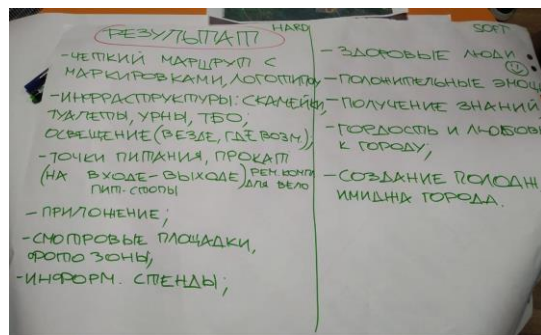 РЕЗУЛЬТАТ
HARD
- ЧЕТКИЙ МАРШРУТ С
МАРКИРОВКАМИ, ЛОГОТИПОМ
- ИНФРАСТРУКТУРЫ: СКАМЕЙКИ,
ТУАЛЕТЫ, УРНЫ, ТБО,
ОСВЕЩЕНИЕ (ВЕЗДЕ, ГДЕ ВОЗМ);
- ТОЧКИ ПИТАНИЯ, ПРОКАТ
(НА ВХОДЕ-ВЫХОДЕ) РЕМ.
ПИТ-СТОПЫ ДЛЯ ВЕЛО
- ПРИЛОЖЕНИЕ;
- СМОТРОВЫЕ ПЛОЩАДКИ,
ФОТО ЗОНЫ;
- ИНФОРМ. СТЕНДЫ;
SOFT
- ЗДОРОВЫЕ ЛЮДИ
- ПОЛОЖИТЕЛЬНЫЕ ЭМОЦ
- ПОЛУЧЕНИЕ ЗНАНИЙ
- ГОРДОСТЬ И ЛЮБОВЬ
К ГОРОДУ;
- СОЗДАНИЕ ПОЛОЖ
ИМИДЖА ГОРОДА.